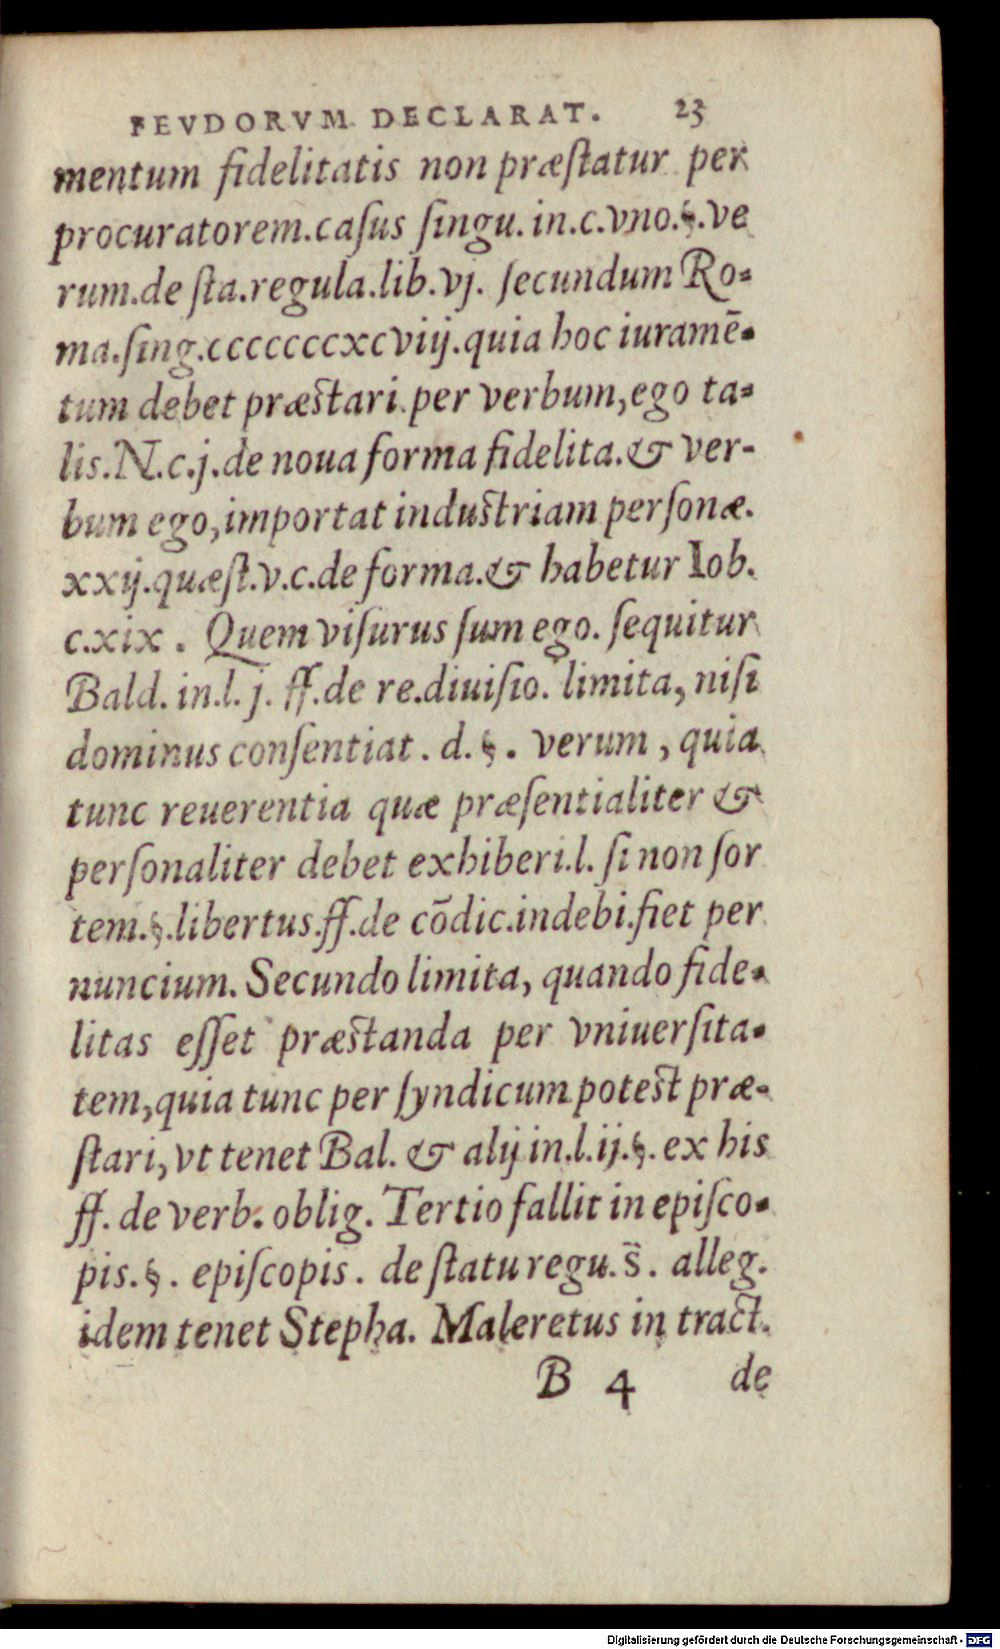 FEVDORVM DECLARAT. 23
mentum fidelitatis non præſtatur per
procuratorem.caſus ſingu. in.c.vno.§.ve
rum.de ſta.regula.lib.vj. ſecundum Ro-
ma.ſing.cccccccxcviij.quia hoc iuramē-
tum debet præſtari.per verbum,ego ta-
lis.N.c.j.de noua forma fidelita.& ver-
bum ego,importat induſtriam perſonæ.
xxij.quæſt.v.c.de forma.& habetur Iob.
c.xix . Quem viſurus ſum ego. ſequitur
Bald. in.l. j. ff.de re.diuiſio. limita, niſi
dominus conſentiat . d.§ . verum , quia
tunc reuerentia quæ præſentialiter &
perſonaliter debet exhiberi.l. ſi non ſor
tem.§.libertus.ff.de cōdic.indebi.fiet per
nuncium. Secundo limita, quando fide-
litas eſſet præſtanda per vniuerſita-
tem,quia tunc per ſyndicum poteſt præ-
ſtari, vt tenet Bal. & alij in.l.ij.§. ex his
ff. de verb. oblig. Tertio fallit in epiſco-
pis.§ . epiſcopis . de ſtatu regu. s̄ . alleg.
idem tenet Stepha. Maleretus in tract.
B 4 de
Digitalisierung gefördert durch die Deutsche Forschungsgemeinschaft - DFG